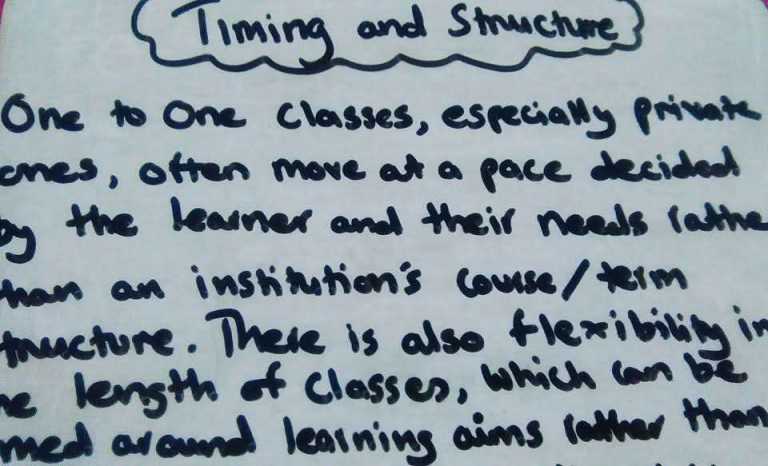 Timing and Structure
One to One classes, especially private
ones, often move at a pace decided
by the learner and their needs rathe
than an institution's course/term
tructure. There is also flexibility in
he length of classes, which can be
med around learning aims rather than